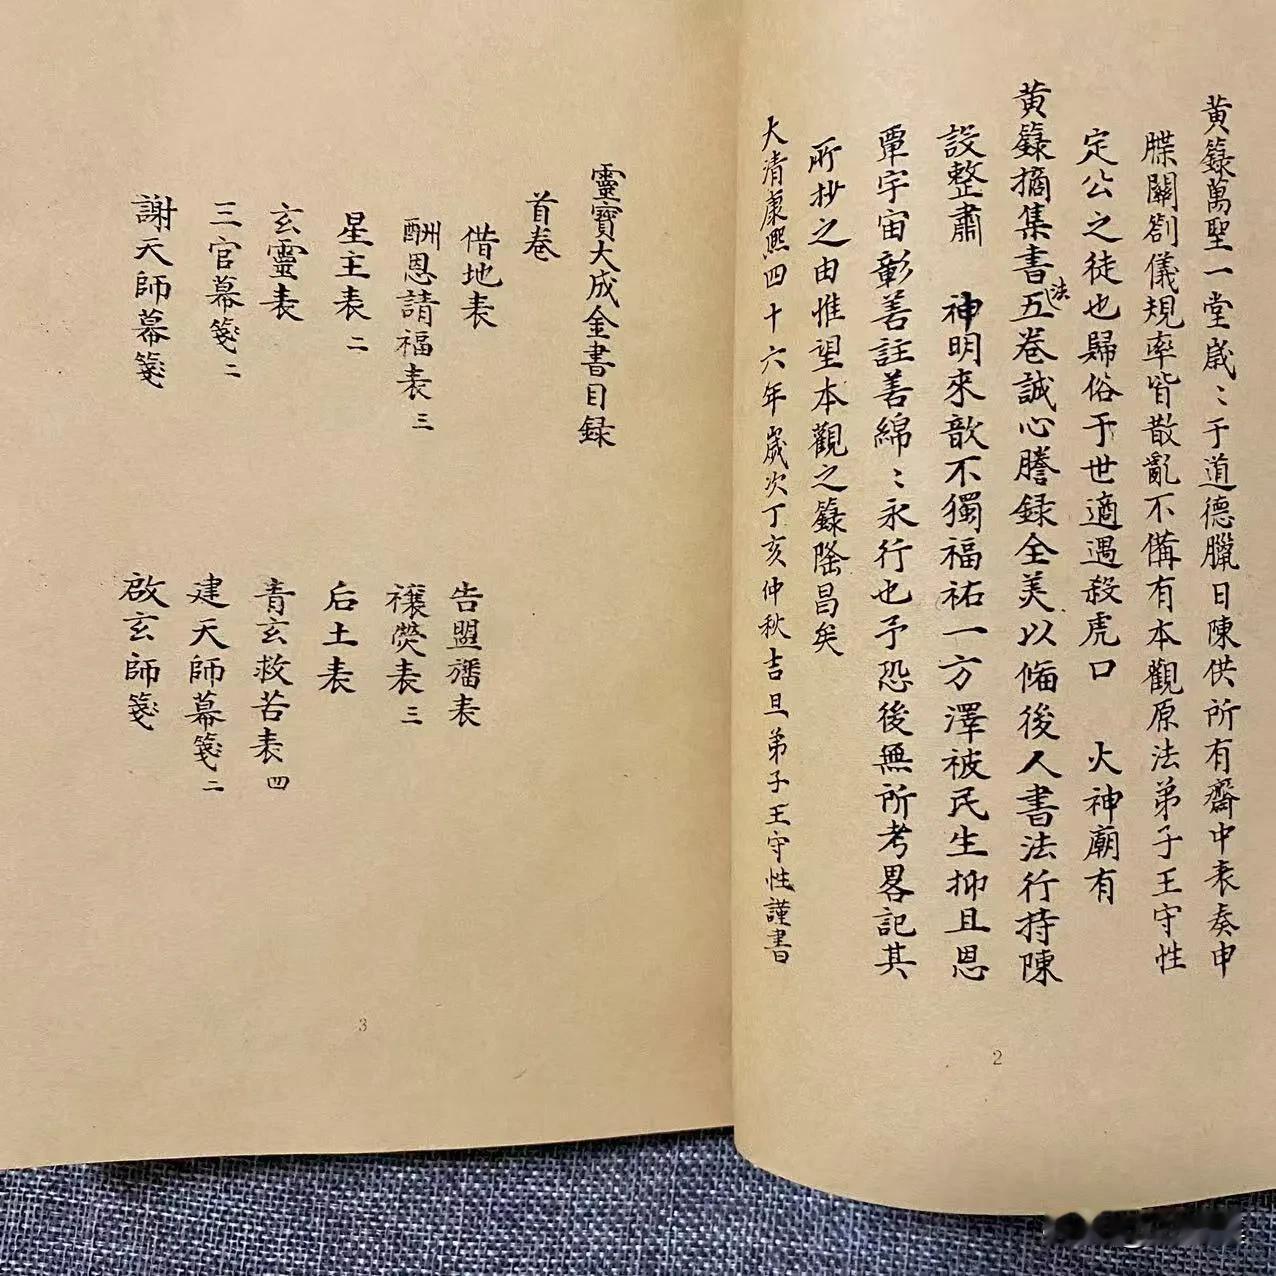 黄籙萬聖一堂歲〻于道德臘日陳供所有齋中表奏申
牒關劄儀規率皆散亂不備有本觀原法弟子王守性
定公之徒也歸俗于世適遇殺虎口 火神廟有
黄籙摘集書法五卷誠心謄録全美以俻後人書法行持陳
設整肅 神明來歆不獨福祐一方澤被民生抑且恩
覃宇宙彰善註善綿〻永行也予恐後無所考畧記其
所抄之由惟望本觀之籙隆昌矣
大清康熙四十六年歲次丁亥仲秋吉旦弟子王守性謹書
2
靈寶大成金書目録
首卷
借地表 告盟旛表
酬恩請福表三 禳熒表三
星主表二 后土表
玄靈表 青玄救苦表四
三官幕箋二 建天師幕箋二
謝天師幕箋 啟玄師箋
3